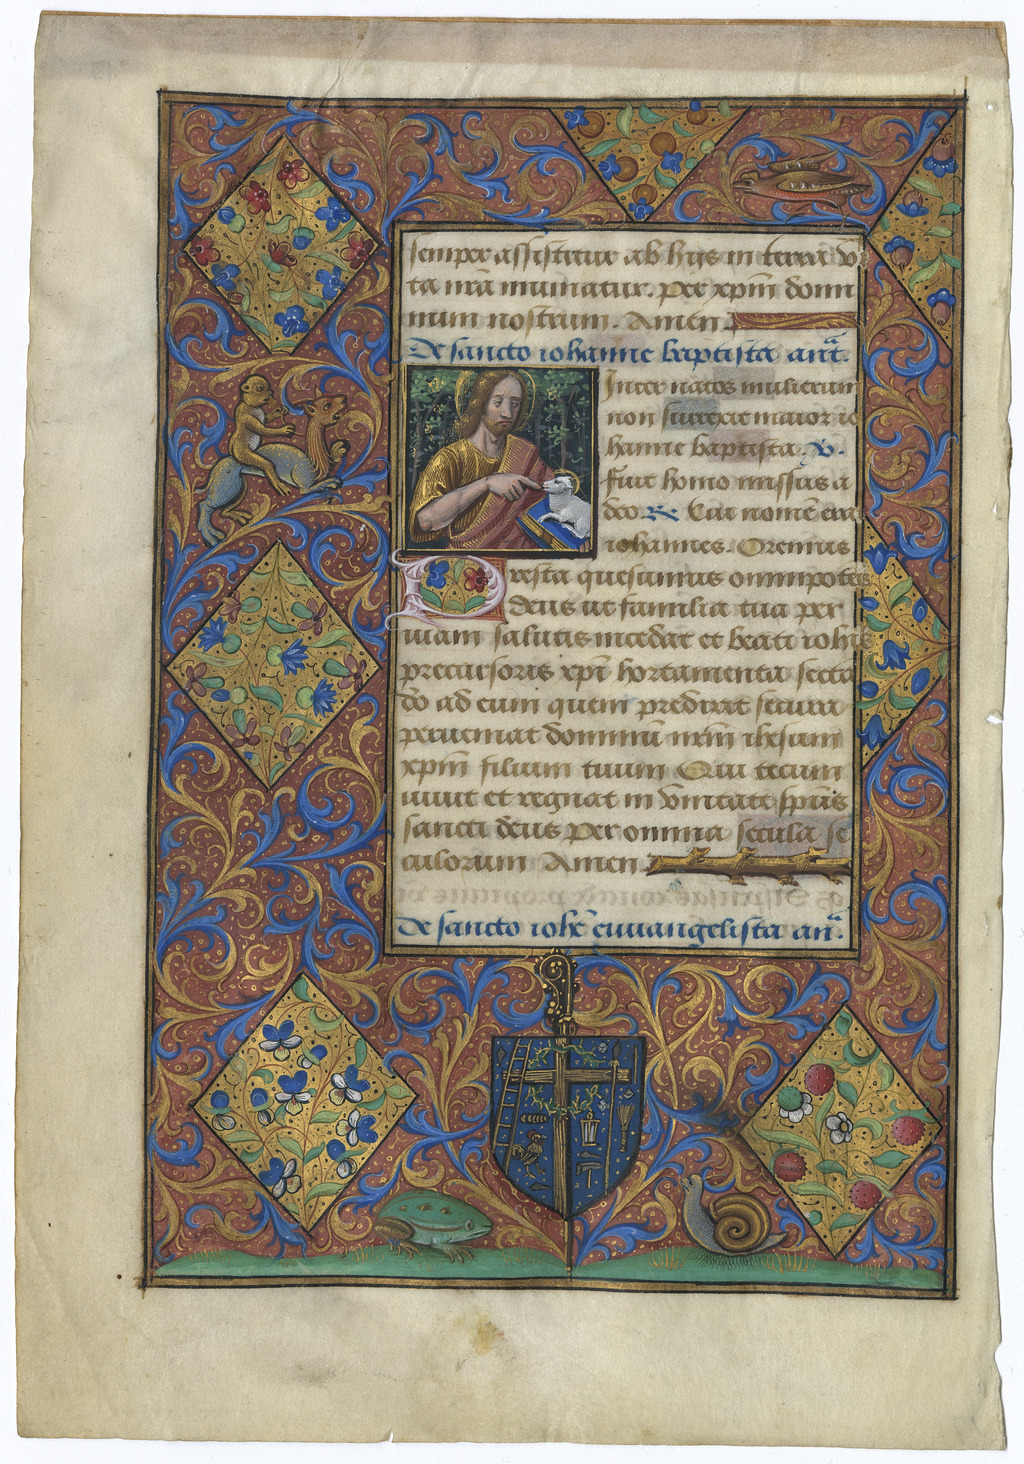 semper assistitur ab hijs in terra vi
ta nr̄a muniatur. Per xp̄m domi
num nostrum. Amen.
De sancto iohanne baptista ant̄.
Inter natos mulierum
non surrexit maior io
hanne baptista. v̄.
Fuit homo missus a
deo. R̄ Cui nomē erat
iohannes. Oremus
Presta quesumus omnipotēs
deus ut familia tua per
uiam salutis incedat et beati iohis
precursoris xp̄i hortamenta secta
do ad eum quem predixit secura
perueniat dominū nr̄m ihesum
xp̄m filium tuum Qui tecum
uiuit et regnat in vnitate sp̄us
sancti deus per omnia secula se
culorum Amen.
De sancto iohē euuangelista an̄.